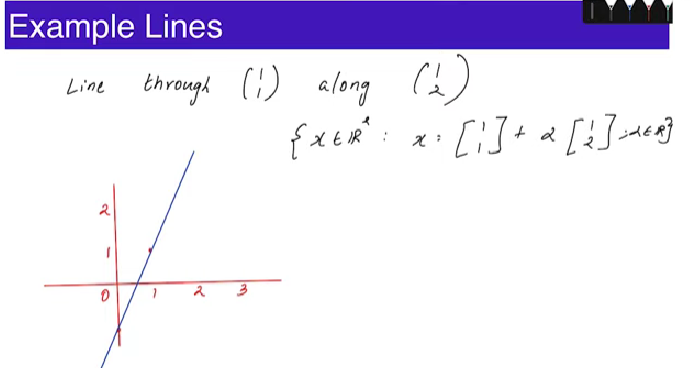 Example Lines
Line through (1 1) along (1 2)
{x ∈ ℝ² : x = [1 1] + α [1 2] ; α ∈ ℝ}
2
1
0 1 2 3